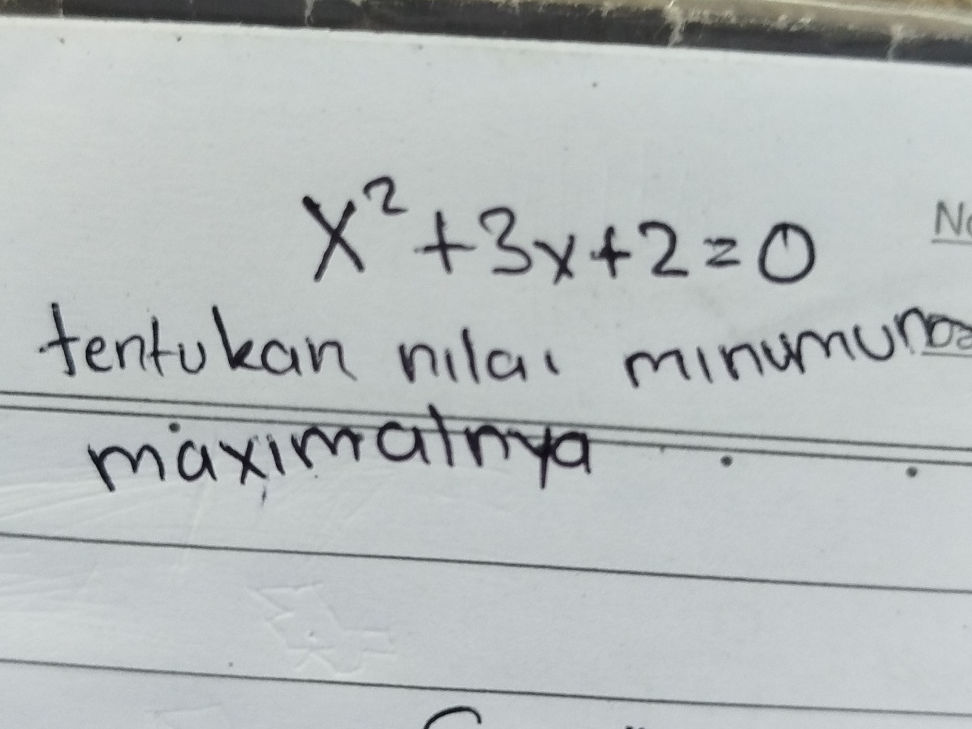 x² + 3x + 2 = 0
No
tentukan nilai minumum
maximalnya